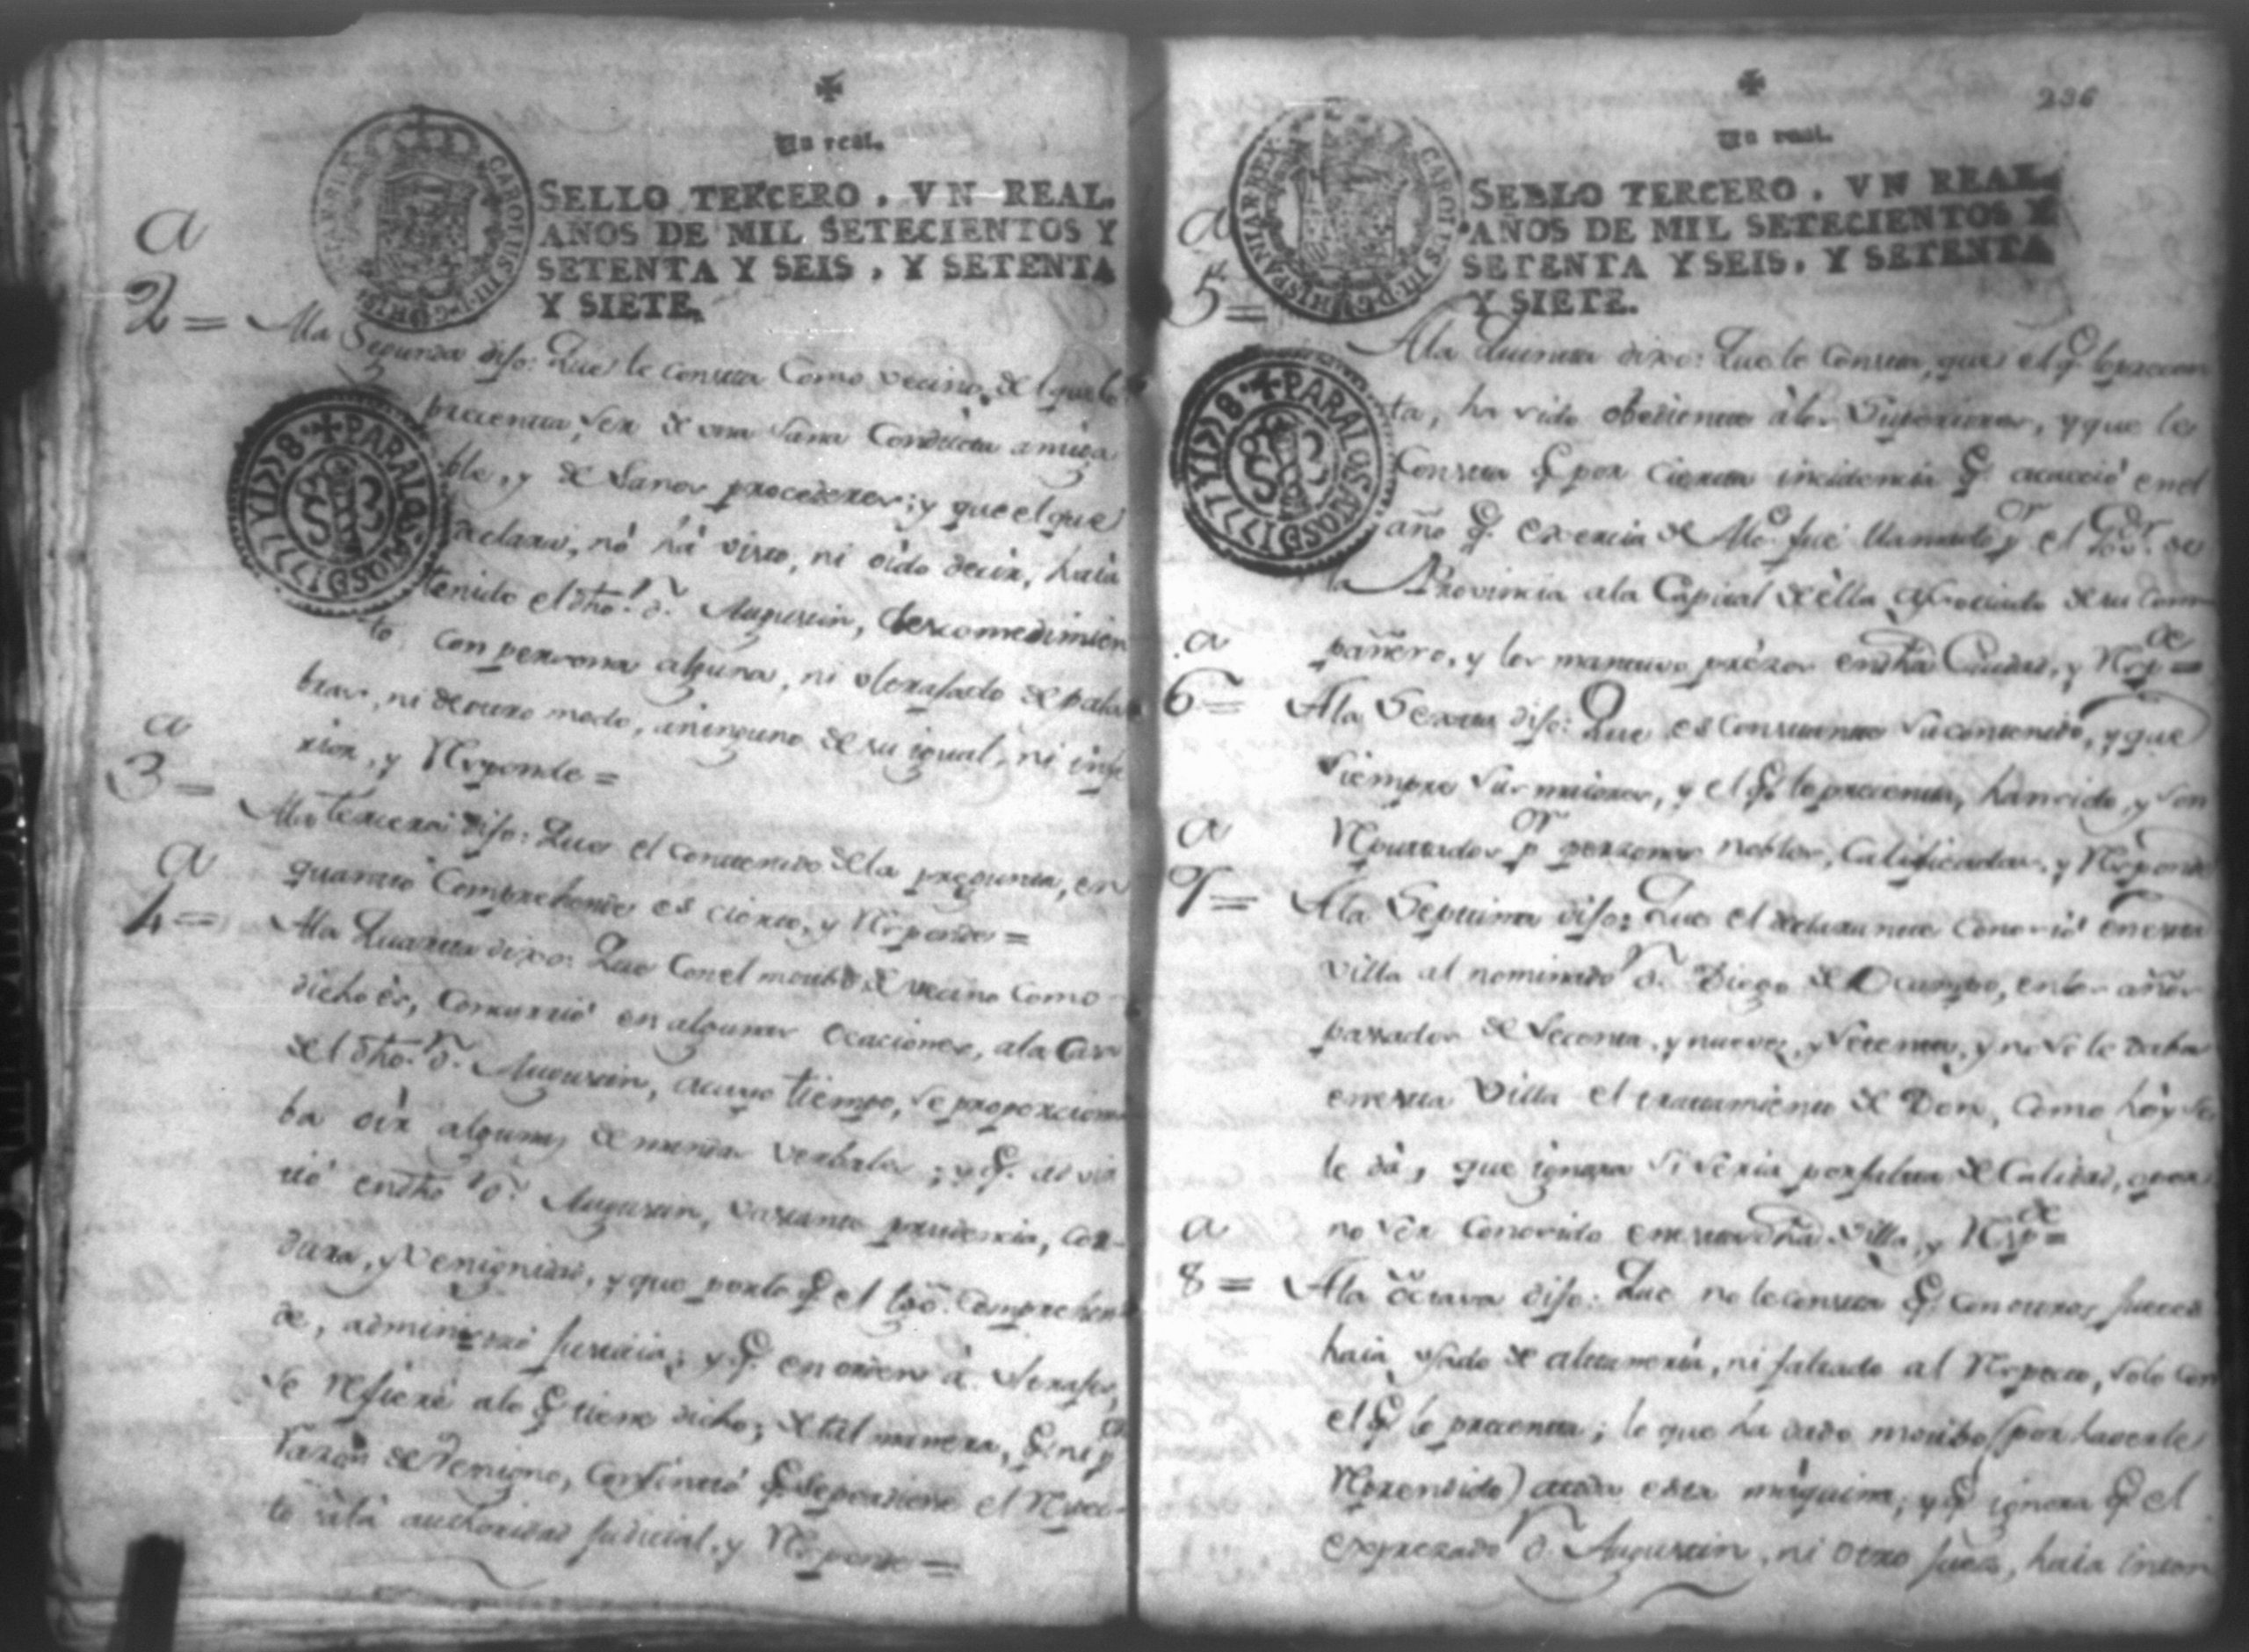 Un real.
SELLO TERCERO, VN REAL.
AÑOS DE MIL SETECIENTOS Y
SETENTA Y SEIS, Y SETENTA
Y SIETE.
CAROLUS III D G HISPANIAR REX
PARA LOS AÑOS D 1777 Y 1778
a
2 = Ala Segunda dijo: Que le consta como vecino, del que le
precenta, ser de una sana conducta amiga
ble, y de sanos procederes; y que el que
declara, nó há visto, ni oìdo decir, haia
tenido el dho. Dn. Augustin, descomedimien
to con persona alguna, ni ulerajado de pala
bras, ni de outro modo, aninguno de su igual, ni infe
rior, y Responde =
a
3 = Ala tercera dijo: Que el contenido de la pregunta, en
quanto Comprehende es cierto, y Responde =
a
4 = Ala Quarta dixo: Que con el motibo de vecino como
dicho ès, concurrió en algunas ocaciones, ala Cas
del dho. Dn. Augustin, acuyo tiempo, se proporciona
ba oìr algunas demandas verbales; y q. advir
tió en dho Dn. Augustin, bastante prudencia, cor-
dura, y venignidad, y que por lo q. el tgo. Comprehen
de, administró Justicia; y q. en orden à ulerajes,
se Refiere alo q. tiene dicho; de tal manera, q. ni pr
razon de venigno, consintió q. se perdiera el Respe-
to àla authoridad Judicial, y Responde =
236
Un real.
SELLO TERCERO, VN REAL.
AÑOS DE MIL SETECIENTOS Y
SETENTA Y SEIS, Y SETENTA
Y SIETE.
CAROLUS III D G HISPANIAR REX
PARA LOS AÑOS D 1777 Y 1778
a
5 =
Ala Quinta dixo: Que le consta, que el q. lo precen
ta, ha sido obediente à los Superiores, y que le
Consta q. por cierta incidencia q. acaeció en el
año q. exercia de Alce. fué llamado pr. el Gov. de
la Provincia ala Capital de èlla asociado de su com
pañero, y los mantuvo prézos en dha Ciudad, y Rspde =
a
6 = Ala Sexta dijo: Que es constante su contenido, y que
siempre sus maiores, y el q. lo precenta, han sido, y son
Reputados pr personas nobles, calificadas, y Responde
a
7 = Ala Septima dijo: Que el declarante conoció en esta
villa al nominado Dn. Diego de Ocampo, en los años
pasados de secenta, y nueve, y setenta, y no se le daba
en esta Villa el tratamiento de Don, como hóy se
le dá, que ignora si seria por falta de Calidad, o por
no ser conocido en esta dha villa, y Rspde =
a
8 = Ala octava dijo: Que no le consta q. con outros Jueces
haia usado de altanería, ni faltado al Respecto, solo con
el q. lo precenta; lo que ha dado motibo (por haverle
Reprendido) atoda esta máquina; y q. ignora q. el
expresado Dn. Augustin, ni otro Juez, haia inten